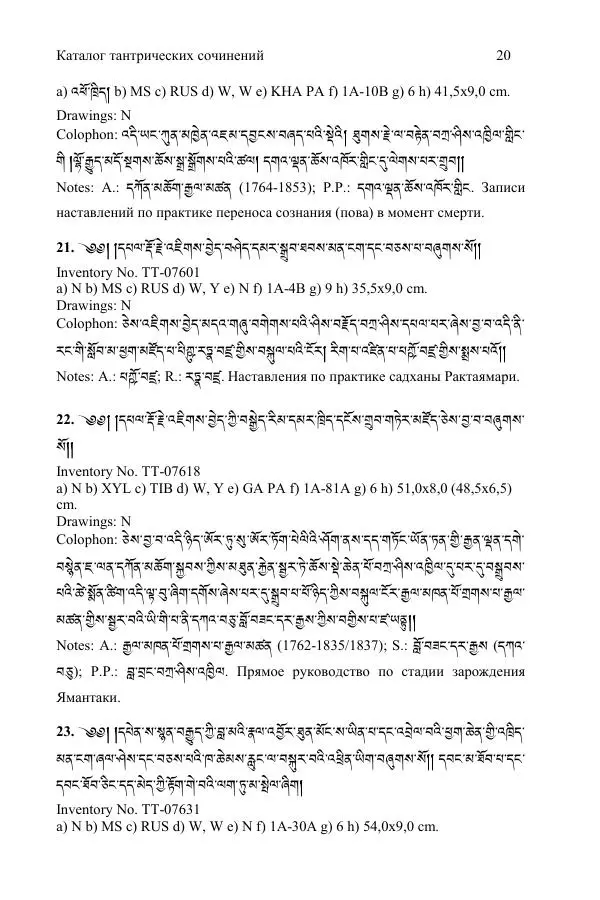 Каталог тантрических сочинений 20
a) འཕོ་ཁྲིད། b) MS c) RUS d) W, W e) KHA PA f) 1A-10B g) 6 h) 41,5x9,0 cm.
Drawings: N
Colophon: འདི་ཡང་ཀུན་མཁྱེན་འཇམ་དབྱངས་བཞད་པའི་སྡེའི། ཐུགས་རྗེ་ལ་བརྟེན་བཀྲ་ཤིས་འཁྱིལ་གླིང་
གི། །ལྷོ་རྒྱུད་མདོ་སྔགས་ཆོས་སྒྲ་སྒྲོགས་པའི་ཚལ། དགའ་ལྡན་ཆོས་འཁོར་གླིང་དུ་ལེགས་པར་གྲུབ།།
Notes: A.: དཀོན་མཆོག་རྒྱལ་མཚན (1764-1853); P.P.: དགའ་ལྡན་ཆོས་འཁོར་གླིང. Записи
наставлений по практике переноса сознания (пова) в момент смерти.
21. ༄༅། །དཔལ་རྡོ་རྗེ་འཇིགས་བྱེད་བཤེད་དམར་སྒྲུབ་ཐབས་མན་ངག་དང་བཅས་པ་བཞུགས་སོ།།
Inventory No. TT-07601
a) N b) MS c) RUS d) W, Y e) N f) 1A-4B g) 9 h) 35,5x9,0 cm.
Drawings: N
Colophon: ཅེས་འཇིགས་བྱེད་མདའ་གཞུ་བགེགས་པའི་ཤིས་བརྗོད་བཀྲ་ཤིས་དཔལ་པར་ཞེས་བྱ་བ་འདི་ནི་
རང་གི་སློབ་མ་ཕྱག་མཛོད་པ་པཎྜི་རཏྣ་བཛྲ་གྱིས་བསྐུལ་པའི་ངོར། རིག་པ་འཛིན་པ་པཀློ་བཛྲ་གྱིས་སྨྲས་པའོ།།
Notes: A.: པཀློ་བཛྲ; R.: རཏྣ་བཛྲ. Наставления по практике садханы Рактаямари.
22. ༄༅། །དཔལ་རྡོ་རྗེ་འཇིགས་བྱེད་ཀྱི་བསྐྱེད་རིམ་དམར་ཁྲིད་དངོས་གྲུབ་གཏེར་མཛོད་ཅེས་བྱ་བ་བཞུགས་
སོ།།
Inventory No. TT-07618
a) N b) XYL c) TIB d) W, Y e) GA PA f) 1A-81A g) 6 h) 51,0x8,0 (48,5x6,5)
cm.
Drawings: N
Colophon: ཅེས་བྱ་བ་འདི་ཉིད་ཨོར་ཏུ་སུ་ཨོར་ཏོག་པེ་ལིའི་ཤོག་ནས་དད་གཏོང་ཡོན་ཏན་གྱི་རྒྱན་ལྡན་དགེ་
བསྙེན་ཇ་ལན་དཀོན་མཆོག་སྐྱབས་ཀྱིས་མཐུན་རྐྱེན་སྦྱར་ཏེ་ཆོས་སྡེ་ཆེན་པོ་བཀྲ་ཤིས་འཁྱིལ་དུ་པར་དུ་བསྒྲུབས་
པའི་ཚེ་སྨོན་ཚིག་འདི་ལྟ་བུ་ཞིག་དགོས་ཞེས་པར་དུ་སྒྲུབ་པ་པོ་ཉིད་ཀྱིས་བསྐུལ་ངོར་རྒྱལ་མཁན་པོ་གྲགས་པ་རྒྱལ་
མཚན་གྱིས་སྦྱར་བའི་ཡི་གེ་པ་ནི་དཀའ་བཅུ་བློ་བཟང་དར་རྒྱས་ཀྱིས་བགྱིས་པ་ཛ་ཡནྟུ།།
Notes: A.: རྒྱལ་མཁན་པོ་གྲགས་པ་རྒྱལ་མཚན (1762-1835/1837); S.: བློ་བཟང་དར་རྒྱས (དཀའ་
བཅུ); P.P.: བླ་བྲང་བཀྲ་ཤིས་འཁྱིལ. Прямое руководство по стадии зарождения
Ямантаки.
23. ༄༅། །དཔེན་ས་སྙན་བརྒྱུད་ཀྱི་བླ་མའི་རྣལ་འབྱོར་ཐུན་མོང་ས་ཡིན་པ་དང་འབྲེལ་བའི་ཕྱག་ཆེན་གྱི་འཁྲིད་
མན་ངག་ཞལ་ཤེས་དང་བཅས་པའི་ཁ་ཆེམས་རླུང་ལ་བསྐུར་བའི་འཕྲིན་ཡིག་བཞུགས་སོ།། དབང་མ་ཐོབ་པ་དང་
དབང་ཐོབ་ཅིང་དད་མེད་ཀྱི་རྟོག་གེ་བའི་ལག་ཏུ་མ་སྤེལ་ཞིག།
Inventory No. TT-07631
a) N b) MS c) RUS d) W, W e) N f) 1A-30A g) 6 h) 54,0x9,0 cm.